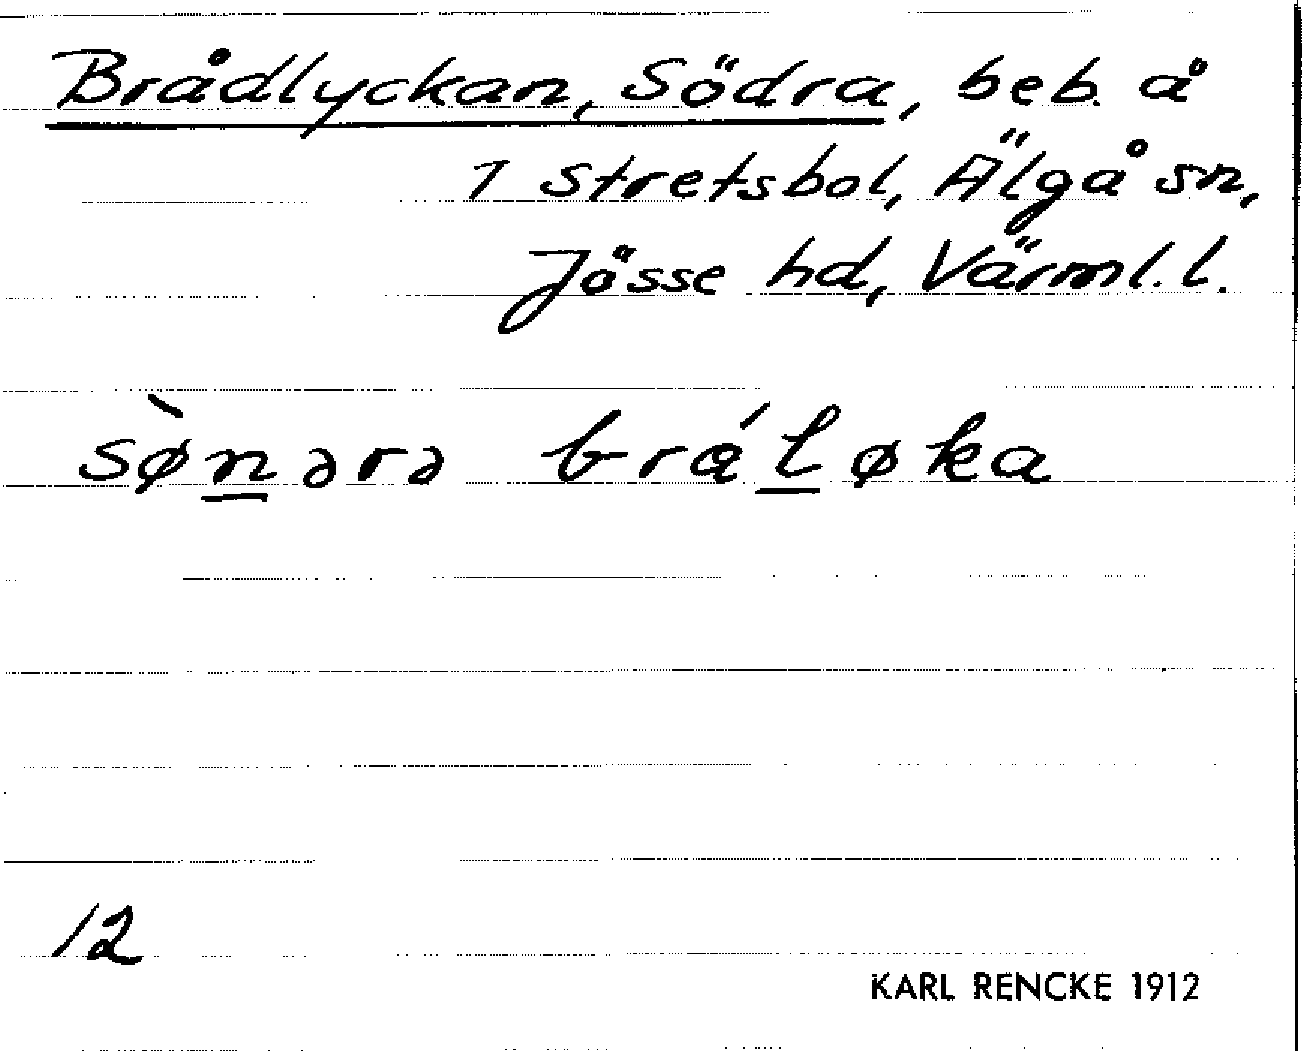 Brådlyckan, Södra, beb. å
1 Stretsbol, Älgå sn,
Jösse hd, Värml. l.
sø̀n̲ərə brá́l̲øka
12
KARL RENCKE 1912